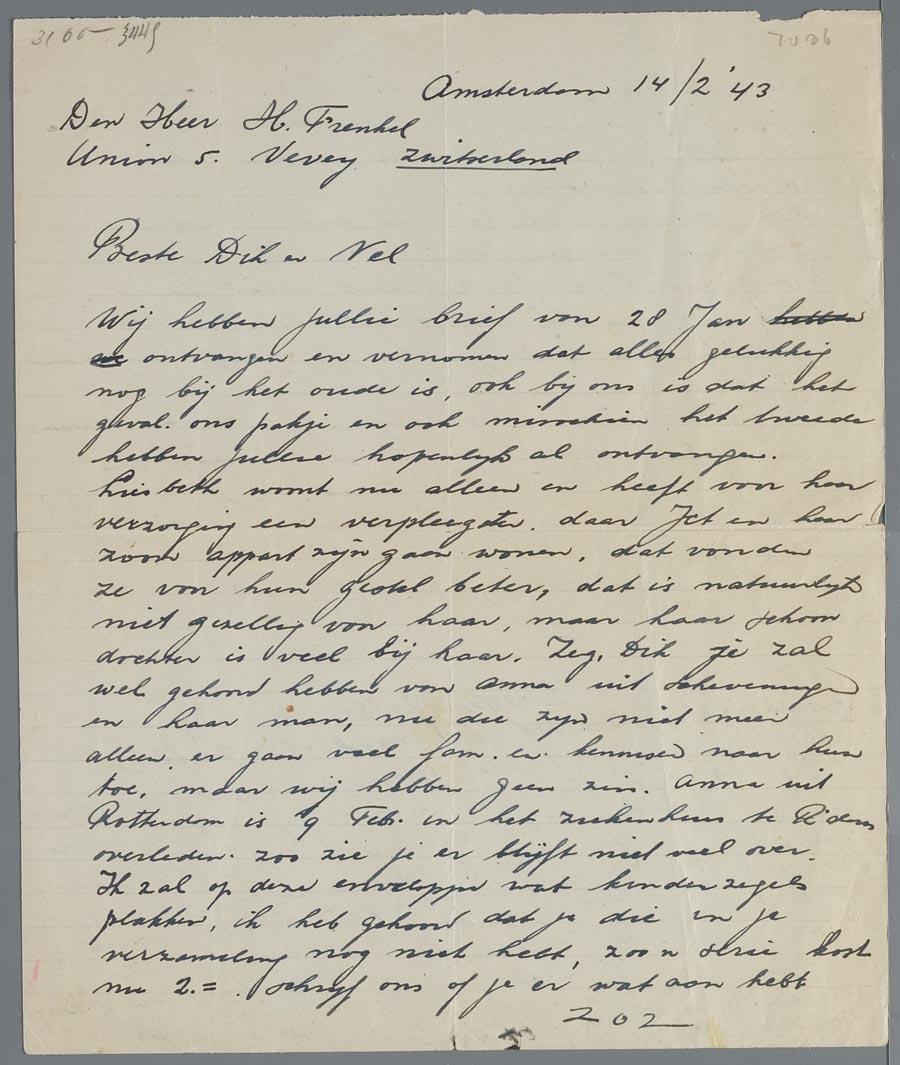 31 60 - 3449
7036
Amsterdam 14/2 '43
Den Heer H. Frenkel
Union 5. Vevey Zwitserland
Beste Dik en Nel
Wij hebben jullie brief van 28 Jan hebben
ontvangen en vernomen dat alles gelukkig
nog bij het oude is, ook bij ons is dat het
geval. ons pakje en ook misschien het tweede
hebben jullie hopenlijk al ontvangen.
Liesbeth woont nu alleen en heeft voor haar
verzorging een verpleegster. daar Jet en haar
zoon appart zijn gaan wonen, dat vonden
ze van hun gestel beter, dat is natuurlijk
niet gezellig voor haar, maar haar schoon
dochter is veel bij haar. Zeg, Dik je zal
wel gehoord hebben van Anna uit Scheveningen
en haar man, nu die zijn niet meer
alleen, er gaan veel fam. en kennissen naar hun
toe, maar wij hebben geen zin. Anna uit
Rotterdam is 9 Feb. in het ziekenhuis te R'dam
overleden. zoo zie je er blijft niet veel over.
Ik zal op deze enveloppe wat kinderzegels
plakken, ik heb gehoord dat je die in je
verzameling nog niet hebt, zoo'n serie kost
nu 2.= . schrijf ons of je er wat aan hebt
ZOZ